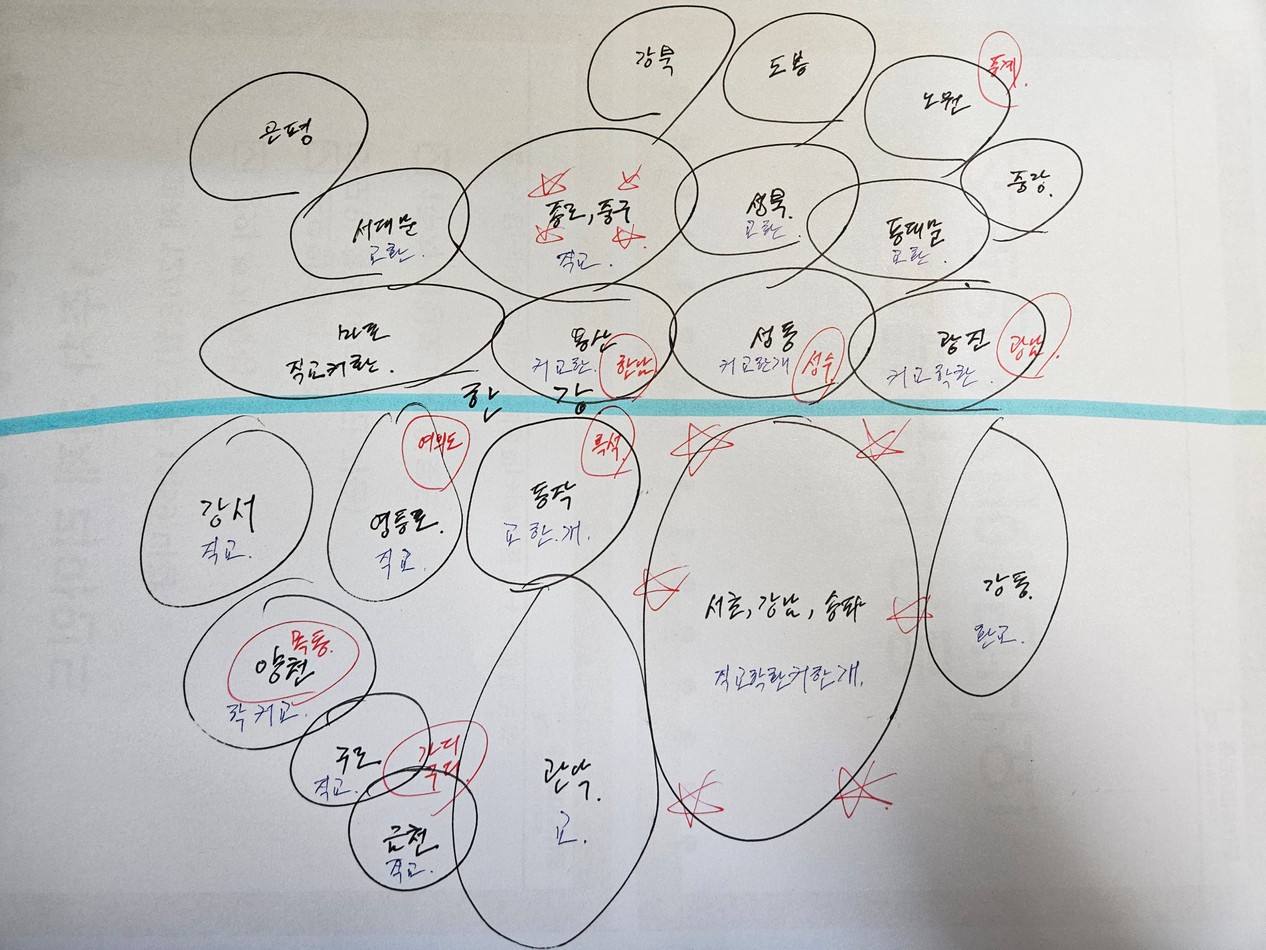 강북
도봉
노원
중계
은평
중랑
서대문
교환.
종로, 중구
직교.
성북.
교환.
동대문
교환.
마포
직교커환.
용산
커교환.
한남
성동
커교환개
성수
광진
커교학환.
광남
한 강
강서
직교.
여의도
영등포.
직교.
흑석
동작
교환.개.
서초, 강남, 송파
직교학환커한개.
강동.
환교.
목동.
양천
학커교.
구로
직교.
가디
구디
금천
직교.
관악.
교.